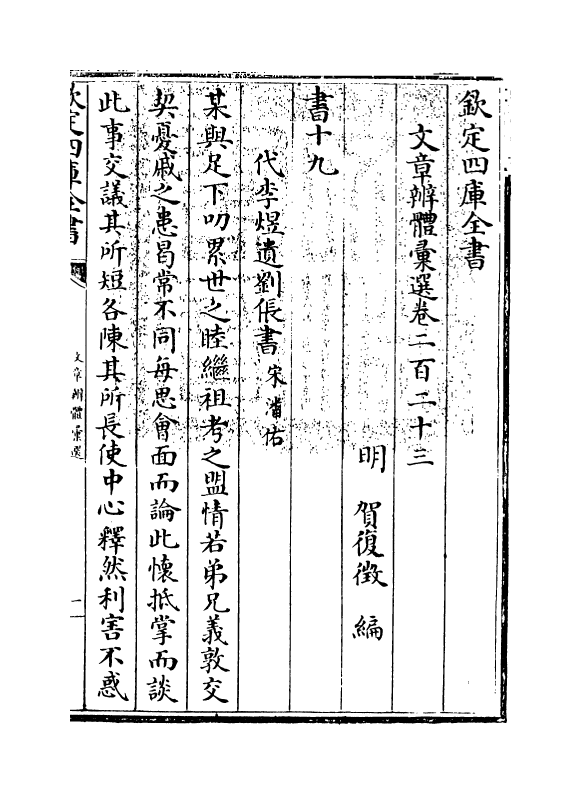 欽定四庫全書
文章辨體彙選卷二百二十三
明 賀復徵 編
書十九
代李煜遺劉倀書宋潘佑
某與足下叨累世之睦繼祖考之盟情若弟兄義敦交
契憂戚之患曷常不同每思會面而論此懷抵掌而談
此事交議其所短各陳其所長使中心釋然利害不惑
欽定四庫全書
文章辨體彙選
一